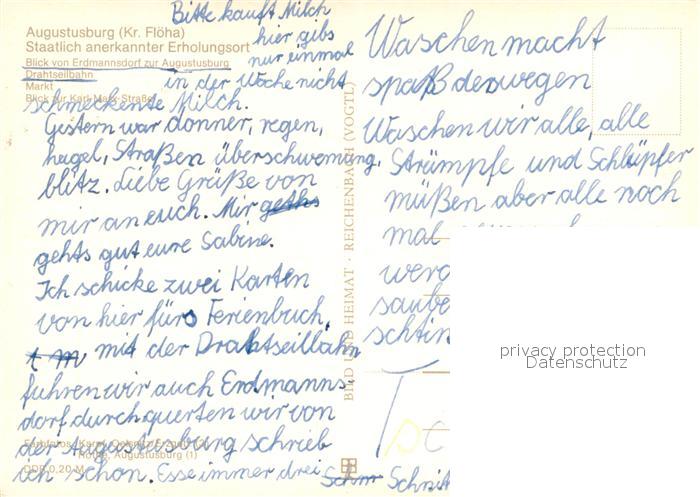 Bitte kauft Milch
hier gibs
nur einmal
in der Woche nicht
schmeckente Milch.
Gestern war donner, regen,
hagel, Straßen überschwemung,
blitz. Liebe Grüße von
mir an euch. Mir
gehts gut eure Sabine.
Ich schicke zwei Karten
von hier fürs Ferienbuch,
mit der Drahtseillbahn
fuhren wir auch Erdmanns
dorf durchquerten wir von
der Augustusburg schrieb
ich schon. Esse immer drei Schnit
Augustusburg (Kr. Flöha)
Staatlich anerkannter Erholungsort
Blick von Erdmannsdorf zur Augustusburg
Drahtseilbahn
Markt
Blick zur Karl-Marx-Straße
Augustusburg (1)
DDR 0,20 M
BILD UND HEIMAT · REICHENBACH (VOGTL)
Waschen macht
spaß deswegen
Waschen wir alle, alle
Strümpfe und Schlüpfer
müßen aber alle noch
mal
werd
saube
schtin
T
privacy protection
Datenschutz